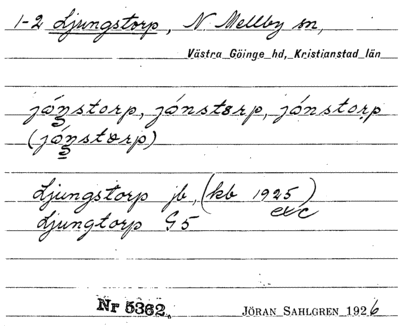 1-2 Ljungstorp, N Mellby sn,
Västra Göinge hd, Kristianstad län
jónstorp, jónstørp, jónstorp
(jónstørp)
Ljungstorp jb, (kb 1925)
exc
Ljungtorp G5
Nr 5362. JÖRAN SAHLGREN 1926